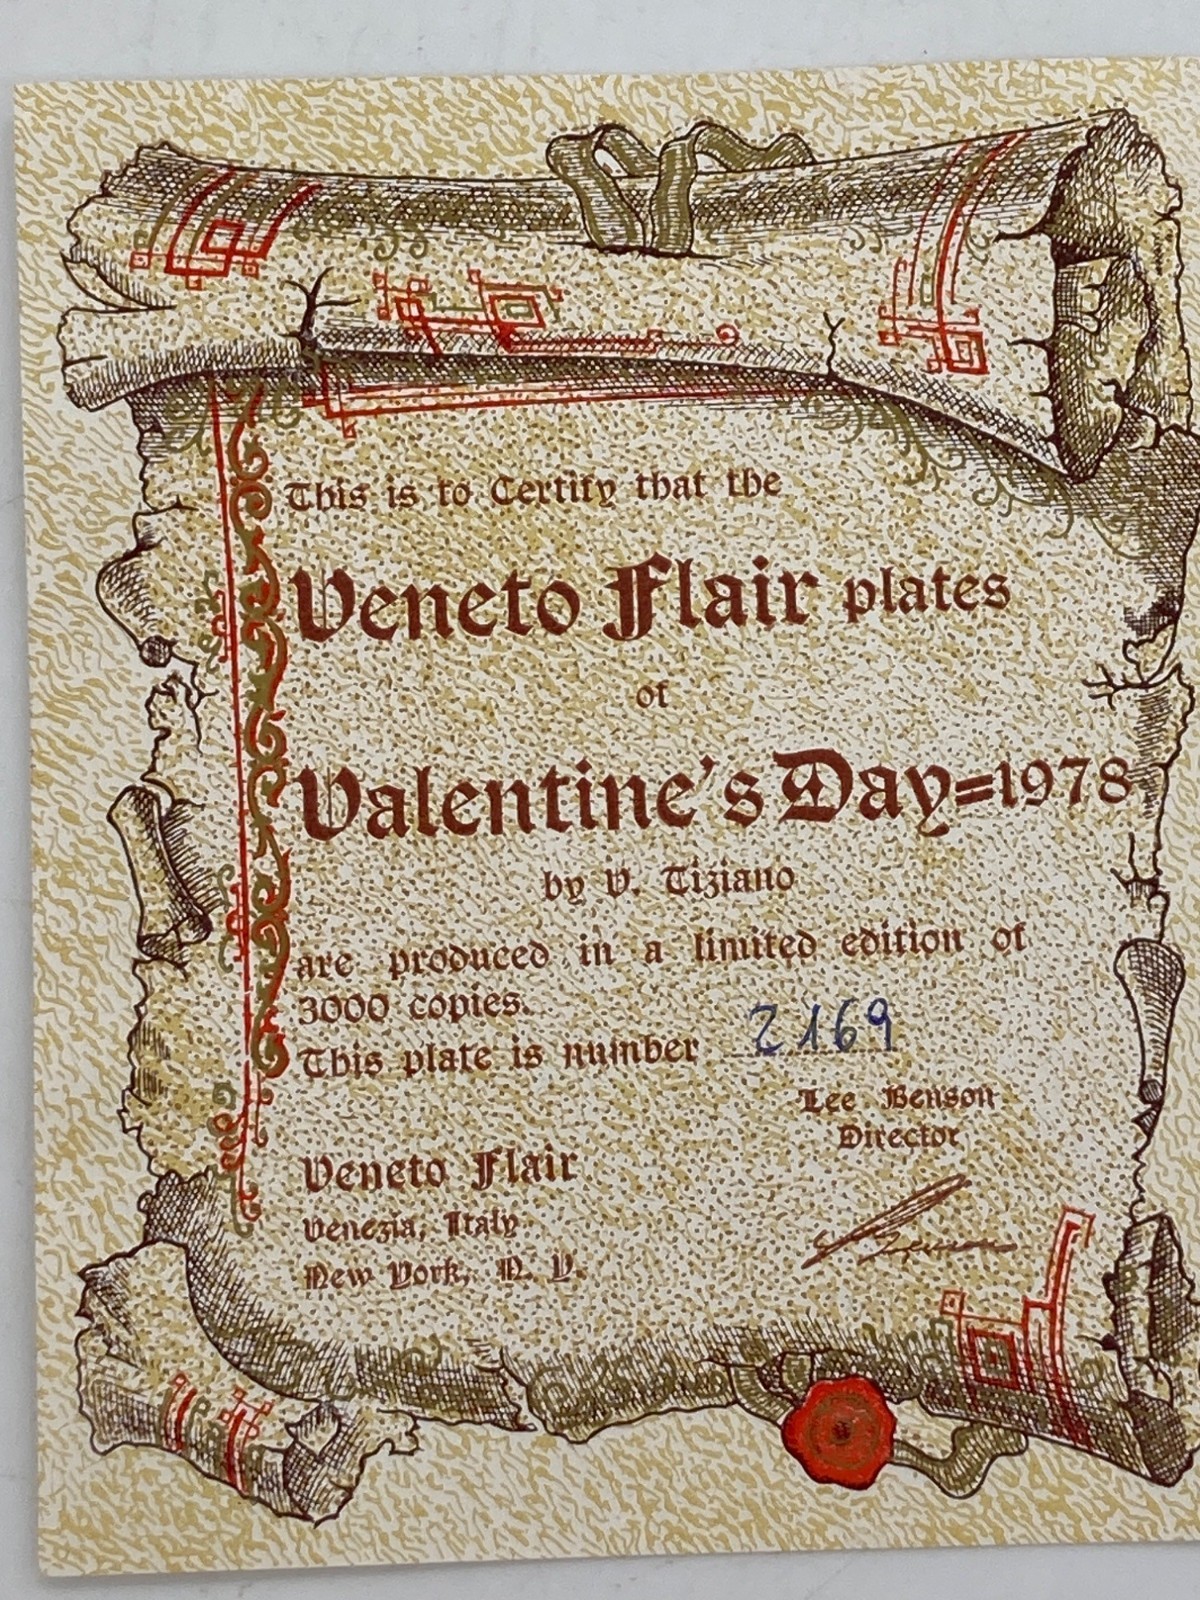 This is to Certify that the
Veneto Flair plates
of
Valentine's Day=1978
by V. Tiziano
are produced in a limited edition of
3000 copies.
This plate is number 2169
Lee Benson
Director
Veneto Flair
Venezia, Italy
New York, N. Y.